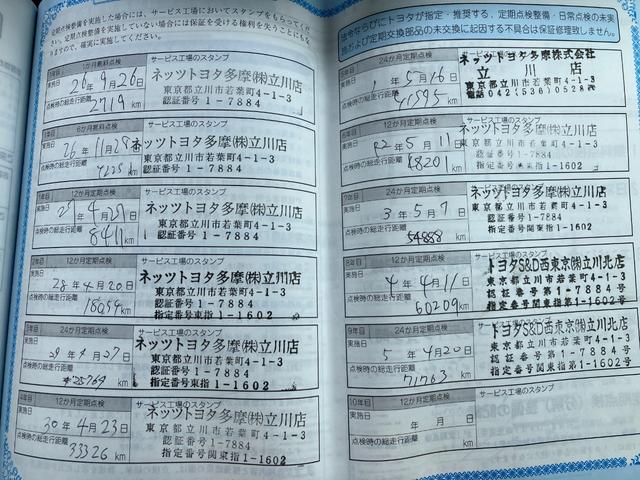 定期点検整備を実施した場合には、サービス工場においてスタンプをもらってく
ださい。定期点検整備を実施していない場合には保証を受ける権利を失うことがあ
りますので、確実に実施してください。
1か月無料点検
サービス工場のスタンプ
実施日
26年9月26日
ネッツトヨタ多摩㈱立川店
東京都立川市若葉町4-1-3
認証番号1-7884
点検時の総走行距離
2719 km
6か月無料点検
サービス工場のスタンプ
実施日
26年11月29日
ネッツトヨタ多摩㈱立川店
東京都立川市若葉町4-1-3
認証番号1-7884
点検時の総走行距離
4225 km
1年目
12か月定期点検
サービス工場のスタンプ
実施日
27年4月29日
ネッツトヨタ多摩㈱立川店
東京都立川市若葉町4-1-3
認証番号1-7884
点検時の総走行距離
8411 km
2年目
12か月定期点検
サービス工場のスタンプ
実施日
28年4月20日
ネッツトヨタ多摩㈱立川店
東京都立川市若葉町4-1-3
認証番号1-7884
指定番号関東指1-1602
点検時の総走行距離
18054 km
3年目
24か月定期点検
サービス工場のスタンプ
実施日
29年4月27日
ネッツトヨタ多摩㈱立川店
東京都立川市若葉町4-1-3
認証番号1-7884
指定番号関東指1-1602
点検時の総走行距離
25764 km
4年目
12か月定期点検
サービス工場のスタンプ
実施日
30年4月23日
ネッツトヨタ多摩㈱立川店
東京都立川市若葉町4-1-3
認証番号1-7884
指定番号関東指1-1602
点検時の総走行距離
33326 km
ならびにトヨタが指定・推奨する、定期点検整備・日常点検の未実
施および定期交換部品の未交換に起因する不具合は保証修理致しません。
5年目
24か月定期点検
サービス工場のスタンプ
実施日
1年5月16日
ネッツトヨタ多摩株式会社
立川店
東京都立川市若葉町4-1-3
電話042(536)0528
点検時の総走行距離
41595 km
6年目
12か月定期点検
サービス工場のスタンプ
実施日
R2年5月11日
ネッツトヨタ多摩㈱立川店
東京都立川市若葉町4-1-3
認証番号1-7884
指定番号関東指1-1602
点検時の総走行距離
48201 km
7年目
24か月定期点検
サービス工場のスタンプ
実施日
3年5月7日
ネッツトヨタ多摩㈱立川店
東京都立川市若葉町4-1-3
認証番号1-7884
指定番号関東指1-1602
点検時の総走行距離
54888 km
8年目
12か月定期点検
サービス工場のスタンプ
実施日
4年4月11日
トヨタS&D西東京㈱立川北店
東京都立川市若葉町4-1-3
認証番号第1-7884号
指定番号関東指第1-1602号
点検時の総走行距離
60209 km
9年目
24か月定期点検
サービス工場のスタンプ
実施日
5年4月20日
トヨタS&D西東京㈱立川北店
東京都立川市若葉町4-1-3
認証番号第1-7884号
指定番号関東指第1-1602号
点検時の総走行距離
71763 km
10年目
12か月定期点検
サービス工場のスタンプ
実施日
年 月 日
点検時の総走行距離
km